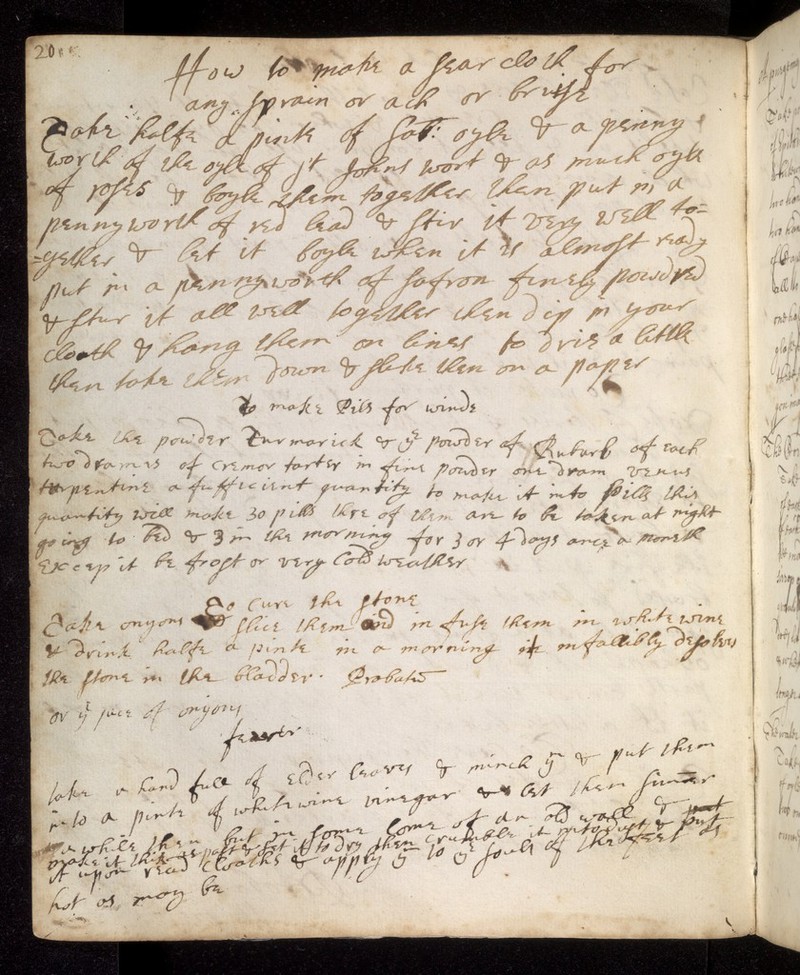 20
How to make a sear cloth for
any sprain or ach or bruise
Take halfe a pinte of sal: oyle & a penny
worth of the oyle of st Johns wort & as much oyle
of roses & boyle them together then put in a
pennyworth of red lead & stir it very well to=
=gether & let it boyle when it is almost ready
put in a pennyworth of safron finely powdred
& stur it all well together then dip in your
cloath & hang them on lines to drie a little
then take them down & sleke them on a paper
To make Pils for winde
Take the powder Turmarick & ye powder of Rubarb of each
two drames of cremor tarter in fine powder one dram venus
turpentine a sufficient quantity to make it into Pills this
quantity will make 30 pills thre of them are to be taken at night
going to bed & 3 in the morning for 3 or 4 days once a moneth
Excep it be frost or very Cold weather
To cure the stone
Take onyons & slice them and in fuse them in white wine
& drink halfe a pinte in a morning it infallibly desolves
the stone in the bladder. Probatum
or ye juce of onyons
feaver
take a hand full of Elder leaves & minch ym & put them
in to a pinte of white wine vinegar & let them simmer
a while then put in some lome of an old wall &
make it thick as past & set it to dry then crumble it into dust & put
it upon read cloaths & apply ym to ye souls of the feet as
hot as may be